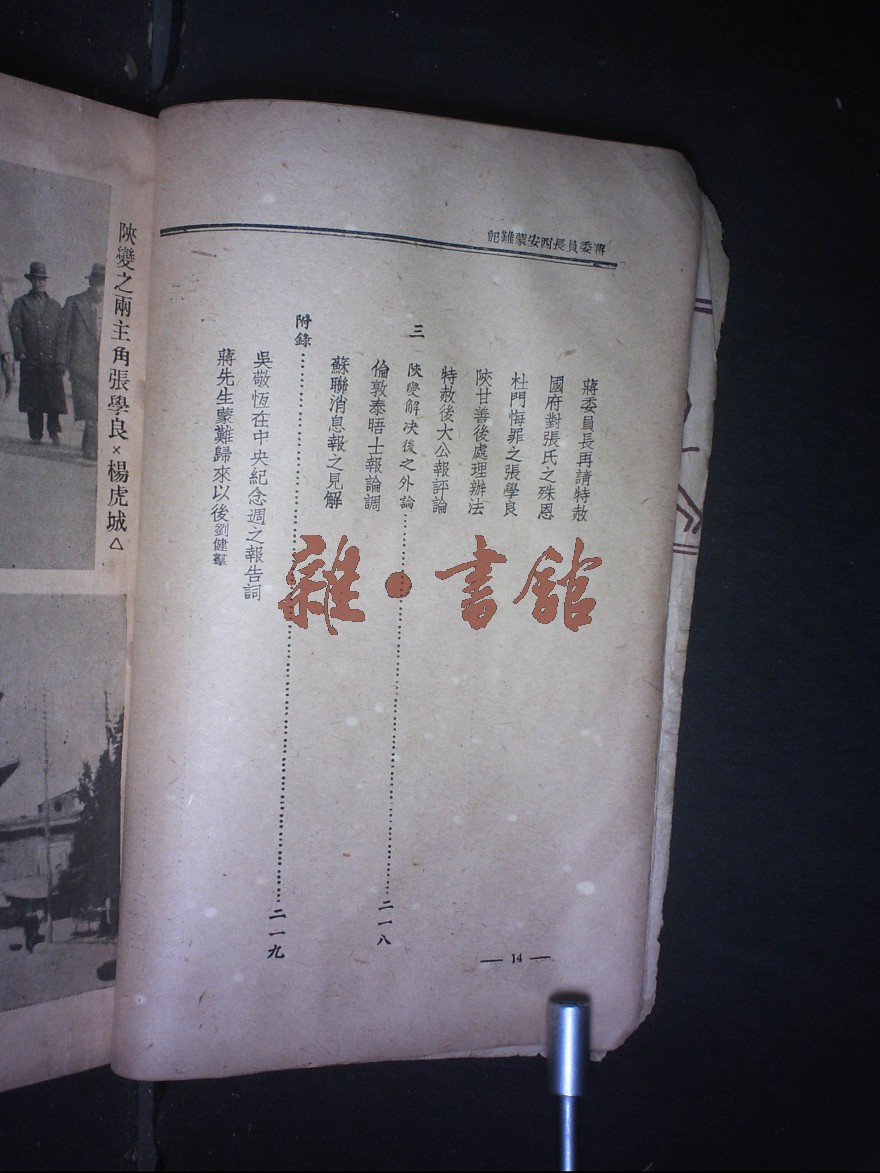 蔣委員長西安蒙難記
蔣委員長再請特赦
國府對張氏之殊恩
杜門悔罪之張學良
陝甘善後處理辦法
特赦後大公報評論
三 陝變解決後之外論⋯⋯⋯⋯⋯⋯⋯⋯二一八
倫敦泰晤士報論調
蘇聯消息報之見解
附錄⋯⋯⋯⋯⋯⋯⋯⋯二一九
吳敬恆在中央紀念週之報告詞
蔣先生蒙難歸來以後劉健羣
— 14 —
陝變之兩主角張學良×楊虎城△
雜·書館